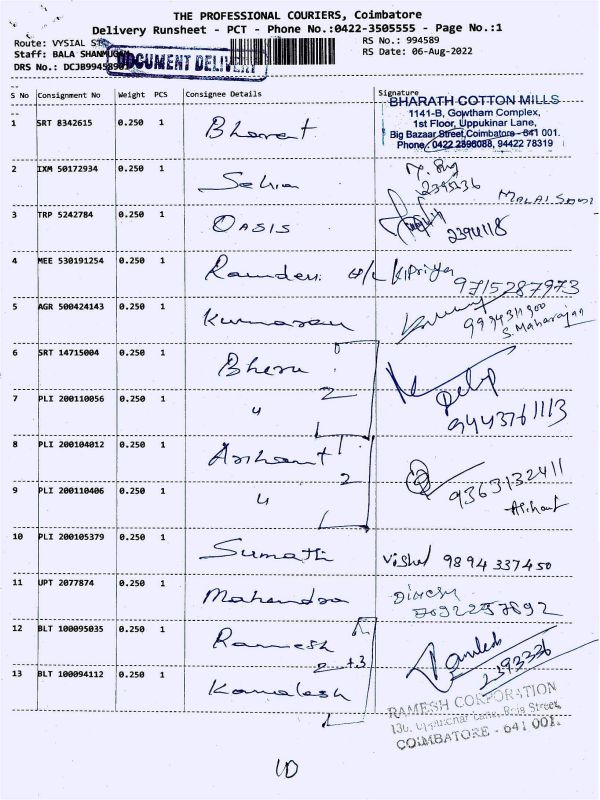 THE PROFESSIONAL COURIERS, Coimbatore
Delivery Runsheet - PCT - Phone No.:0422-3505555 - Page No.:1
Route: VYSIAL
RS No.: 994589
Staff: BALA SHANMUGAM
RS Date: 06-Aug-2022
DRS No.: DCJB9945898
DOCUMENT DELIVERY
S No Consignment No Weight PCS Consignee Details Signature
BHARATH COTTON MILLS
1141-B, Gowtham Complex,
1st Floor, Uppukinar Lane,
Big Bazaar Street, Coimbatore - 641 001.
Phone 0422 2396088, 94422 78319
1 SRT 8342615 0.250 1 Bharat
2 IXM 50172934 0.250 1
3 TRP 5242784 0.250 1 OASIS 2394118
4 MEE 530191254 0.250 1 9715287973
5 AGR 500424143 0.250 1 Kumaran 9994311300
S. Maharajan
6 SRT 14715004 0.250 1 Bheru 2 Dilip
7 PLI 200110056 0.250 1 " 9443761113
8 PLI 200104012 0.250 1 Arihant 2
9 PLI 200110406 0.250 1 " 9363132411
Arihant
10 PLI 200105379 0.250 1 Sumathi Vishal 9894337450
11 UPT 2077874 0.250 1 Mahendra Dinesh
7092257892
12 BLT 100095035 0.250 1 Ramesh
2+3 2393336
13 BLT 100094112 0.250 1 Kamalesh
RAMESH CORPORATION
130, Uppukinar Lane, Raja Street,
COIMBATORE - 641 001.
10